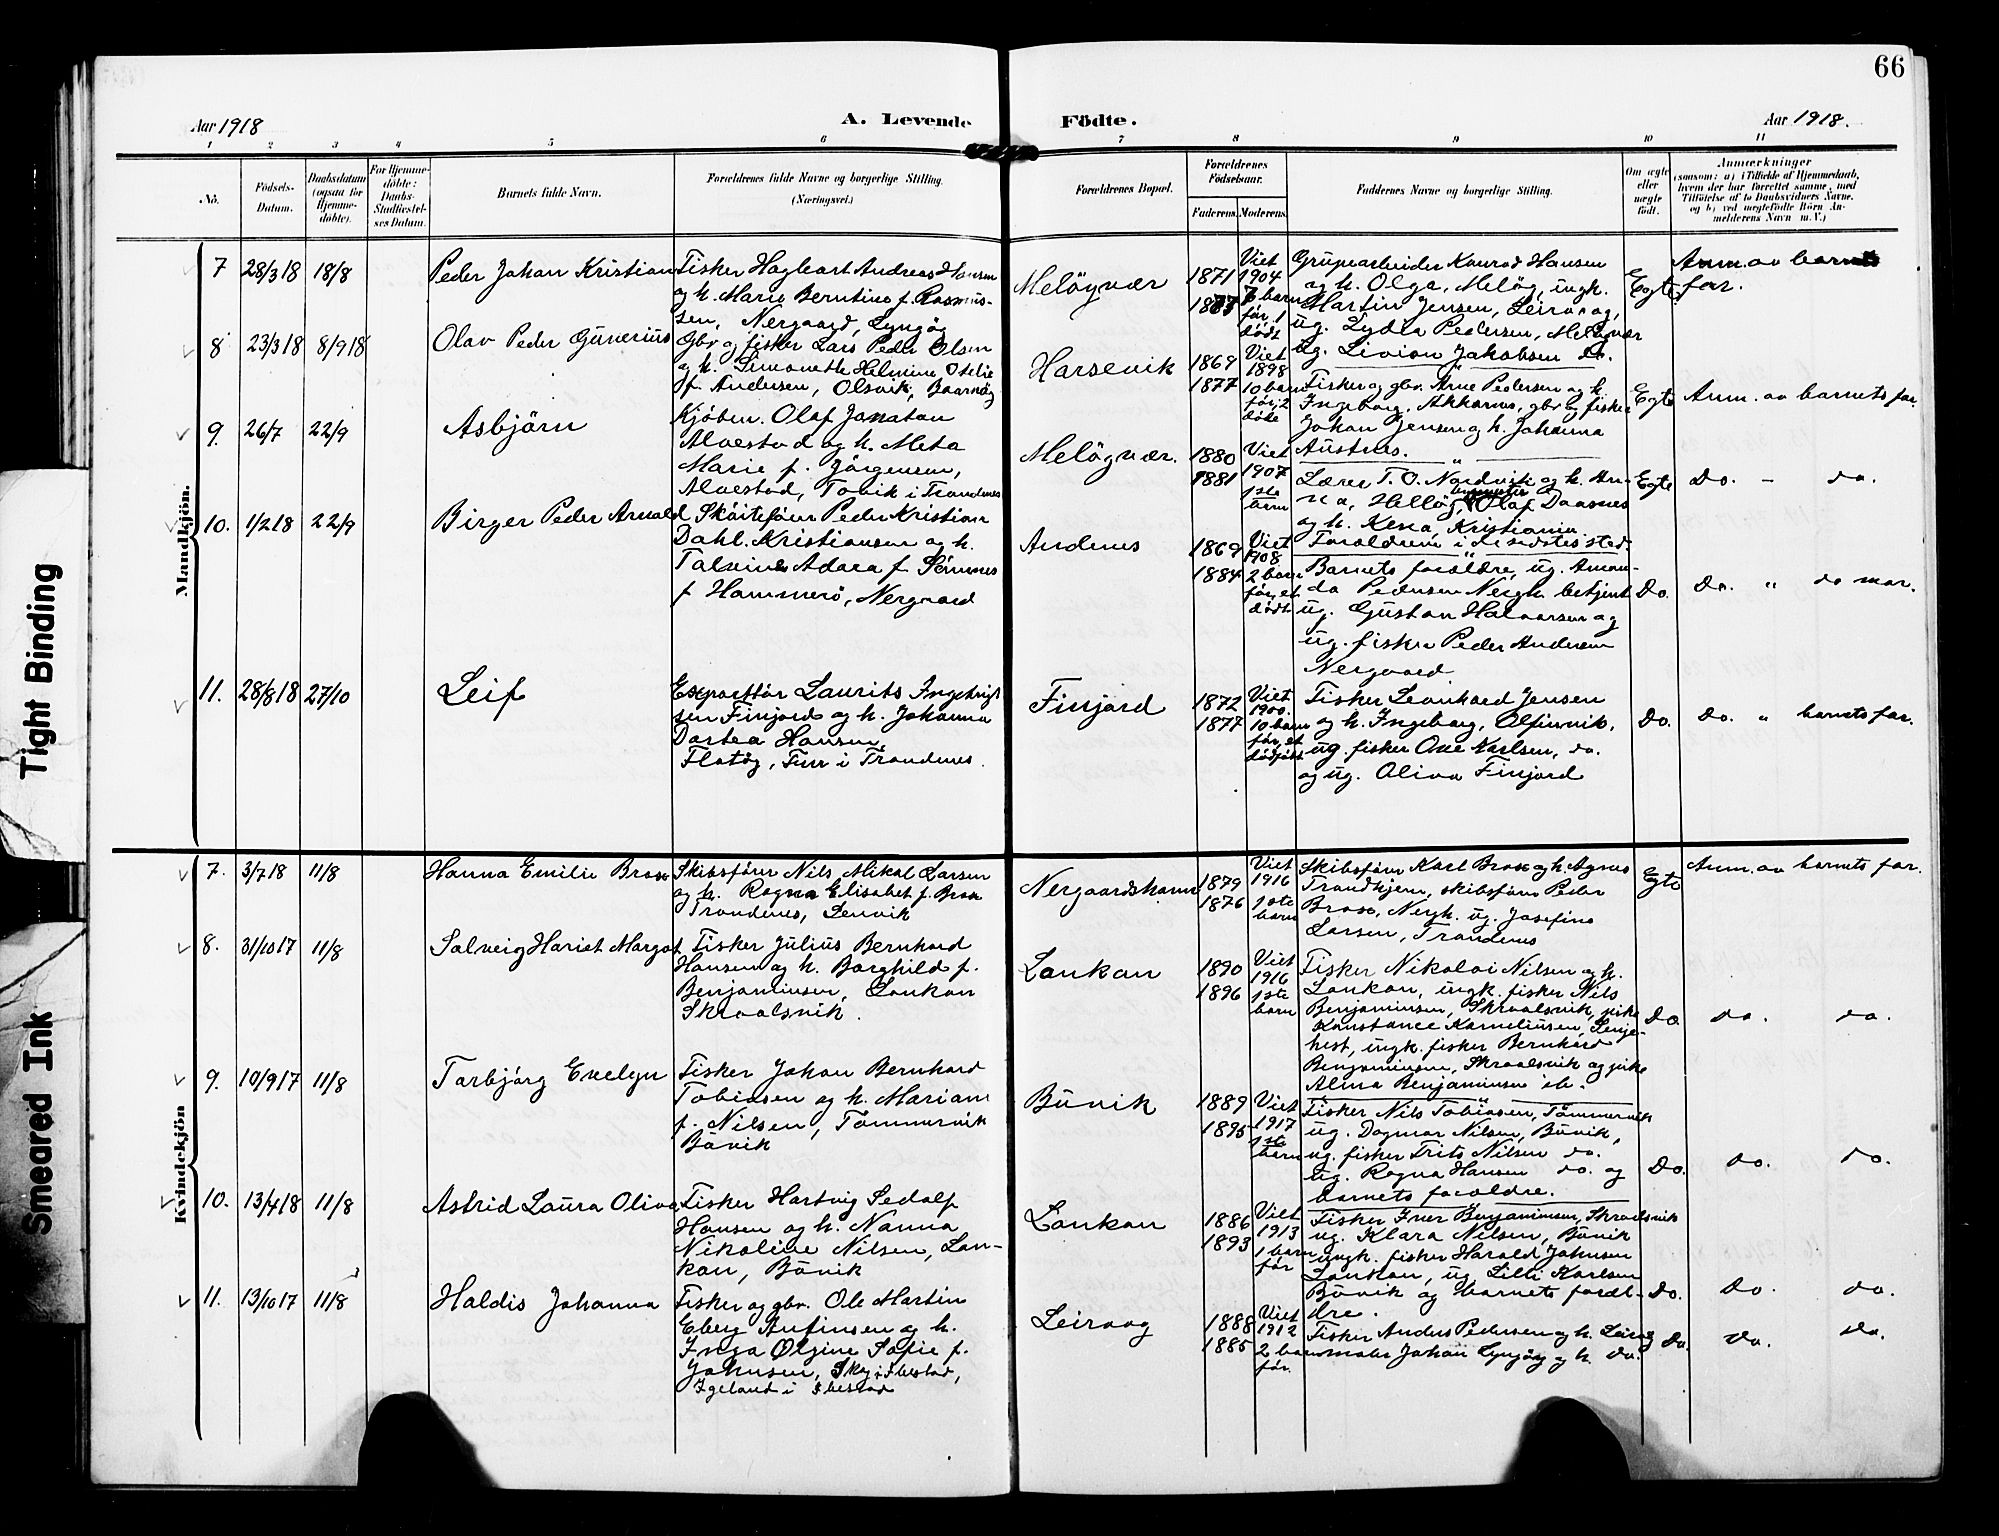 66
Aar 1918
A. Levende
Födte.
Aar 1918.
1 2 3 4 5 6 7 8 9 10 11
No.
Födsels-
Datum.
Daabsdatum
(ogsaa for
Hjemme-
döbte).
For Hjemme-
döbte:
Daabs-
Stadfæstel-
ses Datum.
Barnets fulde Navn.
Forældrenes fulde Navne og borgerlige Stilling.
(Næringsvei.)
Forældrenes Bopæl.
Forældrenes
Födselsaar.
Faderens. Moderens.
Faddernes Navne og borgerlige Stilling.
Om ægte
eller
uægte
födt.
Anmærkninger
(saasom: a) i Tilfælde af Hjemmedaab,
hvem der har forrettet samme, med
Tilföielse af to Daabsvidners Navne.
og b) ved uægtefödte Börn An-
melderens Navn m. V.)
Mandkjön.
7 28/3 18 18/8
Peder Johan Kristian
Fisker Hagbart Andreas Hansen
og h. Marie Berntine f. Rasmus-
sen, Nergaard, Lyngöy
Melöyvær
1871
Viet
1904
7 barn
før, 1
dödt
Grupearbeider Konrad Hansen
og h. Olga, Melöy, ungk.
Martin Jensen, Leiraag,
ug. Lydia Pedersen, Melöyvær
ug. Livion Jakobsen do.
Egte
Anm. av barnets
far.
8 23/3 18 8/9 18
Olav Peder Gunerius
Gbr og fisker Lars Peder Olsen
og h. Simonette Helmine Otelie
f. Andersen, Olsvik,
Harsevik
1869
1877
Viet
1898
10 barn
før, 2
døde
Fisker og gbr. Arne Pedersen og h.
Ingeborg, Akkarnes, gbr og fisker
Johan Jensen og h. Johanna
Austnes.
Egte
Anm. av barnets far.
9. 26/7 22/9
Asbjörn
Kjöbm. Olaf Jonatan
Alvestad og h. Meta
Marie f. Jörgensen,
Alvestad, Tovik i Trondenes
Melöyvær.
1880
1881
Viet
1907
1ste
barn
Lærer T. O. Nordvik og h. An-
na, Hellöy, Olaf Daasnes
og h. Kena, Kristiania
Forældrene i sted.
Egte
Do. - do.
10. 1/2 18 22/9
Birger Peder Arnold
Sköiteförer Peder Kristian
Dahl. Kristiansen og h.
Talvine Adara f. Sömnes
f Hammerö, Nergaard
Andenes
1869
1884
Viet
1908
2 barn
før, et
dödt
Barnets forældre, ug. Aman-
da Pedersen Nergh. betjent
ug. Gustav Halvorsen og
ug. fisker Peder Andersen
Nergaard
Do.
Do. " do mor.
11. 28/8 18 27/10
Leif
Exportför Laurits Ingebrigt
sen Finjord og h. Johanna
Dortea Hansen,
Flatöy, Finn i Trondenes.
Finjord
1872
1877
Viet
1900.
10 barn
før, et
dödfödt
Fisker Leonhard Jensen
og h. Ingeborg, Olfinvik,
ug. fisker Ove Karlsen, do.
og ug. Oliva Finjord
Do.
Do. " barnets far.
Kvindekjön
7. 3/7 18 11/8
Hanna Emilie Brox
Skibsförer Nils Mikal Larsen
og h. Ragna Elisabet f. Brox
Trondenes, Lenvik
Nergaardshamn
1879
1876
Viet
1916
1ste
barn
Skibsförer Karl Brox og h. Agnes
Trondhjem, skibsförer Peder
Brox, Nergh. ug. Josefine
Larsen, Trondenes
Egte
Anm. av barnets far.
8. 31/10 17 11/8
Solveig Hariet Margot
Fisker Julius Bernhard
Hansen og h. Borghild f.
Benjaminsen, Lankan
Skroalsvik.
Lankan
1890
1896
Viet
1916
1ste
barn
Fisker Nikolai Nilsen og h.
Lankan, ungk. fisker Nils
Benjaminsen, Skroalsvik, pike
Konstance Korneliusen, Senje-
hest, ungk. fisker Bernhard
Benjaminsen, Skroalsvik og pike
Alma Benjaminsen ib.
Do.
Do. do.
9. 10/9 17 11/8
Torbjörg Evelyn
Fisker Johan Bernhard
Tobiasen og h. Mariane
f. Nilsen, Tömmervik
Büvik
Büvik
1889
1895
Viet
1917
1ste
barn
Fisker Nils Tobiasen, Tömmervik
ug. Dagmar Nilsen, Büvik,
ug. fisker Frits Nilsen do.
ug. Ragna Hansen do. og
barnets forældre.
Do.
Do. do.
10. 13/4 18 11/8
Astrid Laura Oliva
Fisker Hartvig Sedolf
Hansen og h. Nanna
Nikoline Nilsen, Lan-
kan, Büvik
Lankan
1886
1893
Viet
1913
1 barn
før
Fisker Iver Benjaminsen, Skroalsvik
ug. Klara Nilsen, Büvik
ungk. fisker Harald Johnsen
Lankan, ug. Lilli Karlsen
Büvik og barnets foræl-
dre.
Do.
Do. do.
11. 13/10 17 11/8
Haldis Johanna
Fisker og gbr. Ole Martin
Eberg Anfinsen og h.
Inga Olgine Sofie f.
Johnsen, Skog i Ibestad,
Igeland i Ibestad
Leiraag
1888
1885
Viet
1912
2 barn
før.
Fisker Anders Pedersen og h. Leiraag
maler Johan Lyngöy og h. do.
Do.
Do. Do.
Tight Binding
Smeared Ink